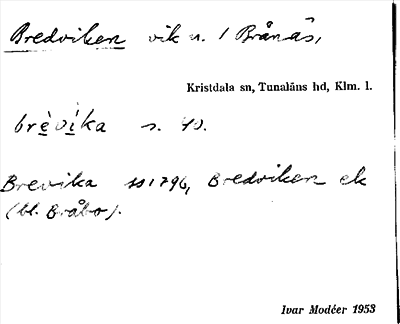 Bredviken vik n. i Brånås,
Kristdala sn, Tunaläns hd, Klm. l.
brèvìka s. 40.
Brevika 1796, Bredviken ek
(bl. Bråbo).
Ivar Modéer 1953